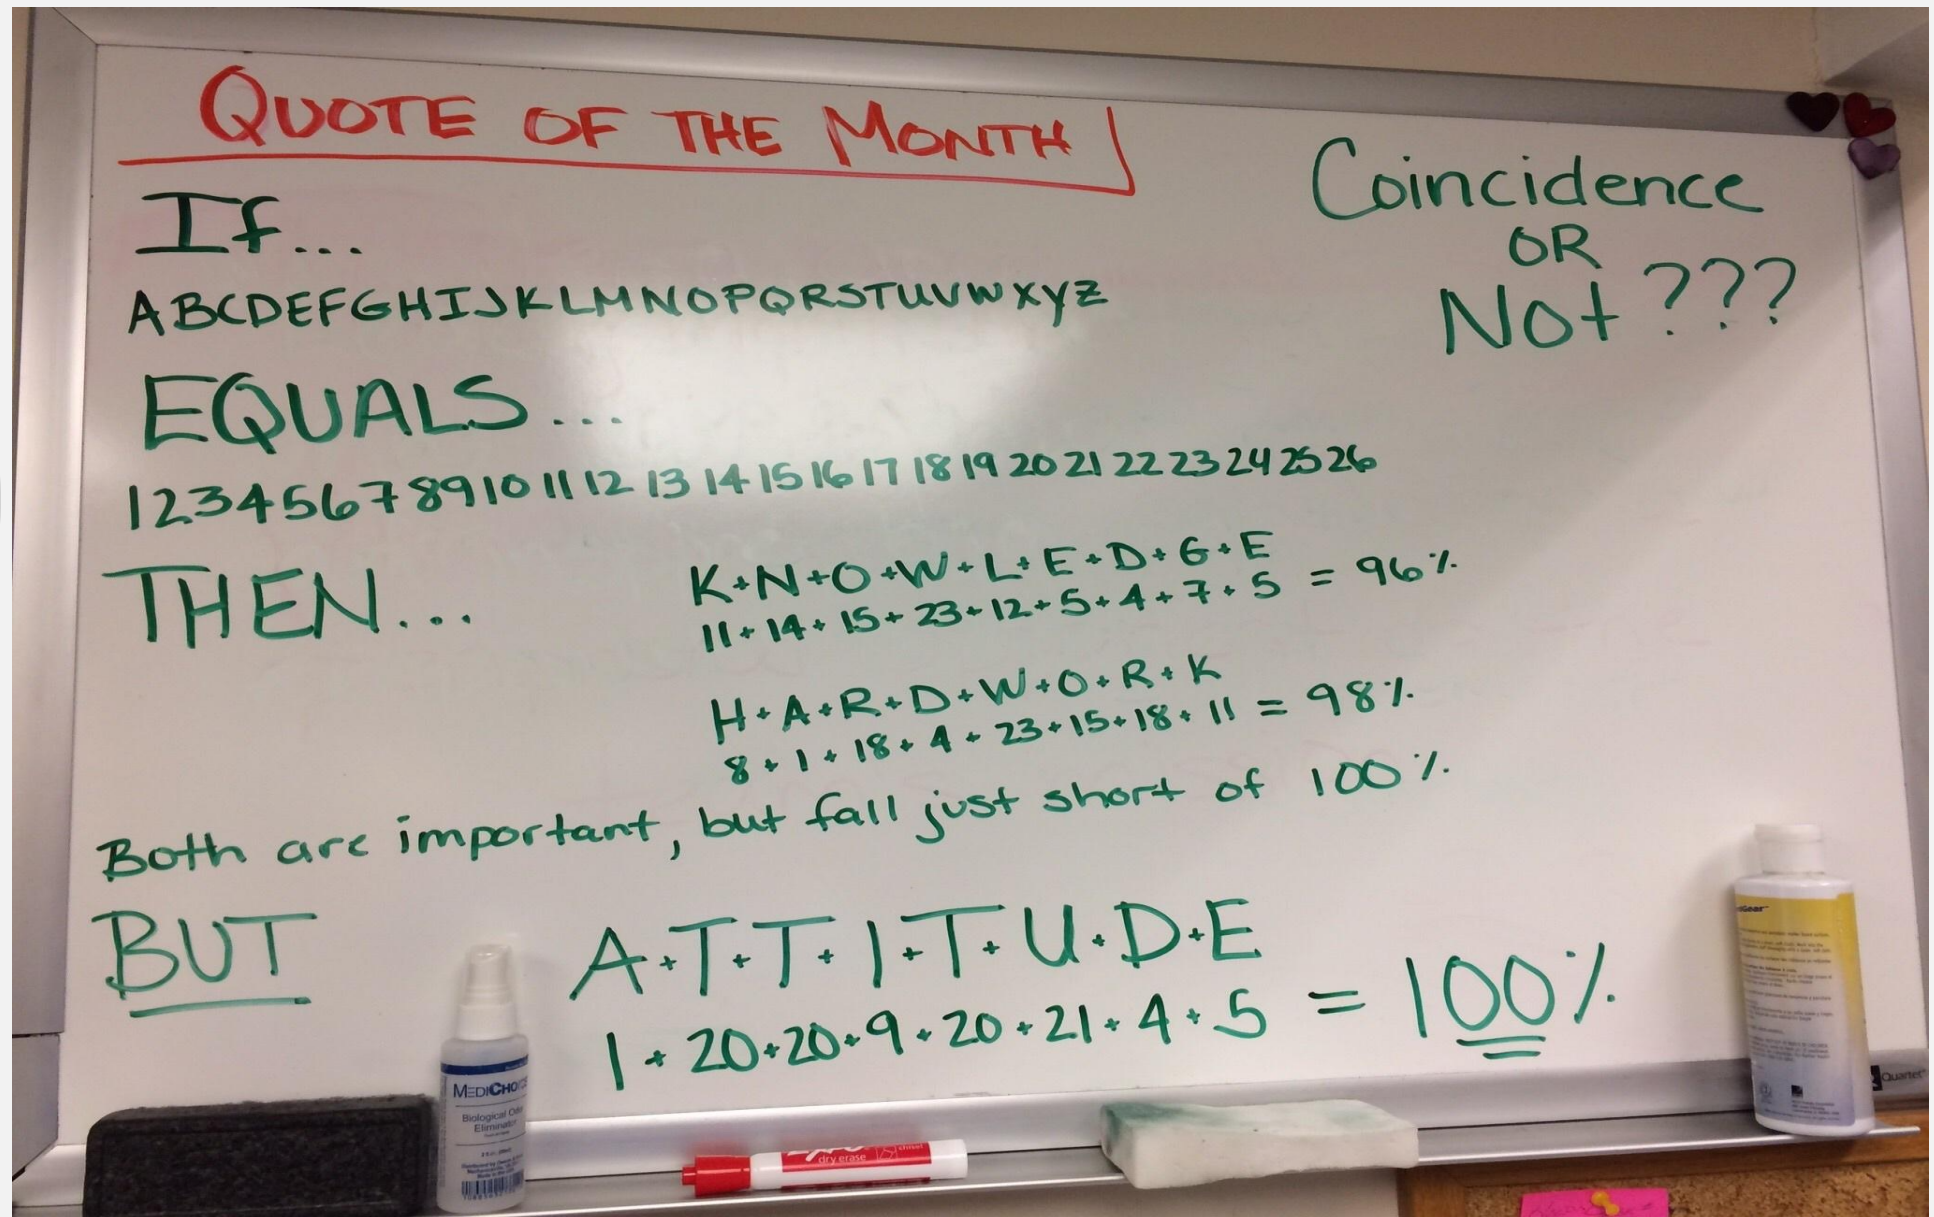 QUOTE OF THE MONTH
Coincidence
OR
Not ???
If...
ABCDEFGHIJKLMNOPQRSTUVWXYZ
EQUALS...
1 2 3 4 5 6 7 8 9 10 11 12 13 14 15 16 17 18 19 20 21 22 23 24 25 26
THEN...
K+N+O+W+L+E+D+G+E
11+14+15+23+12+5+4+7+5 = 96%
H+A+R+D+W+O+R+K
8+1+18+4+23+15+18+11 = 98%
Both are important, but fall just short of 100%
BUT
A+T+T+I+T+U+D+E
1+20+20+9+20+21+4+5 = 100%
MEDICHOICE
Biological Odor
Eliminator
dry erase
Quartet